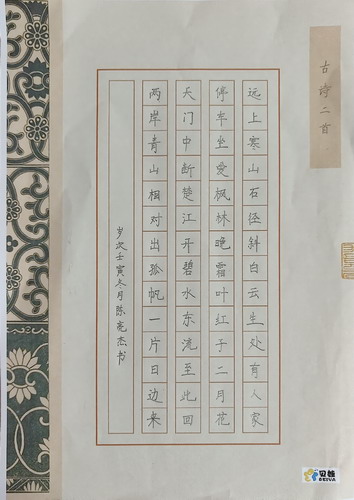 古诗二首
远上寒山石径斜白云生处有人家
停车坐爱枫林晚霜叶红于二月花
天门中断楚江开碧水东流至此回
两岸青山相对出孤帆一片日边来
岁次壬寅冬月陈亮杰书
贝娃
BEIVA